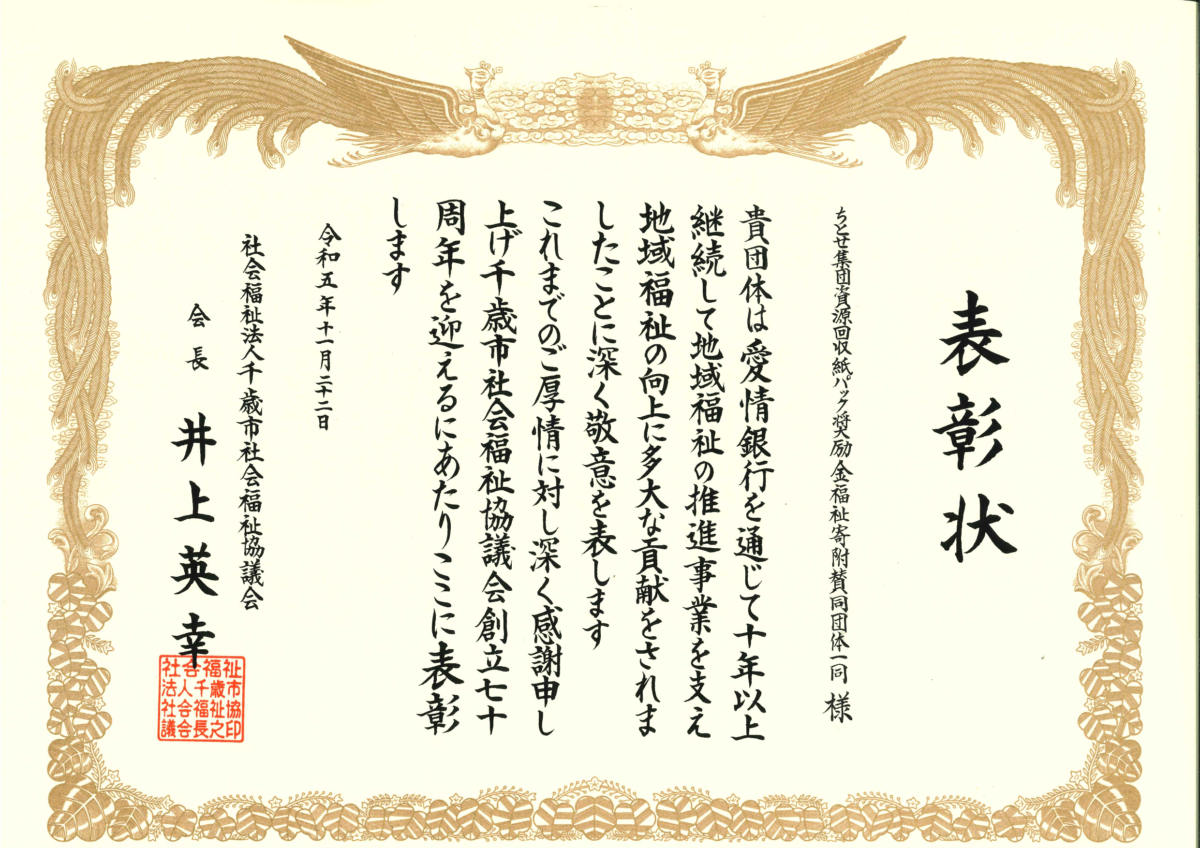 表彰状
ちとせ集団資源回収紙パック奨励金福祉寄附賛同団体一同 様
貴団体は愛情銀行を通じて十年以上
継続して地域福祉の推進事業を支え
地域福祉の向上に多大な貢献をされま
したことに深く敬意を表します
これまでのご厚情に対し深く感謝申し
上げ千歳市社会福祉協議会創立七十
周年を迎えるにあたりここに表彰
します
令和五年十一月二十二日
社会福祉法人千歳市社会福祉協議会
会長 井上英幸
社会福祉
法人千歳市
社会福祉協
議会会長之印